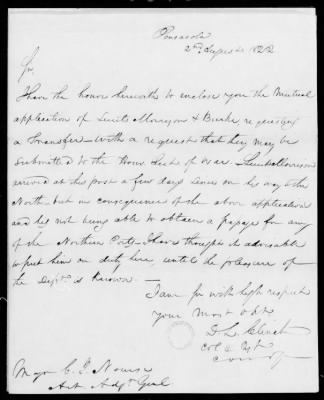 Pensacola
2nd August 1822
Sir,
I have the honor herewith to enclose you the Mutual
application of Lieuts Morrison & Burke, requesting
a Transfer – with a request that they may be
submitted to the Honr. Secty of War. Lieut Morrison
arrived at this post a few days since on his way to the
North – but in consequence of the above application
and his not being able to obtain a passage for any
of the Northern Ports – I have thought it advisable
to put him on duty here, until the pleasure of
the Dept. is known. –
I am Sir with high respect
your Most Obt
D L Clinch
Col 4 Inft
Comdg
Major C. J. Nourse
Act. Adjt. Genl